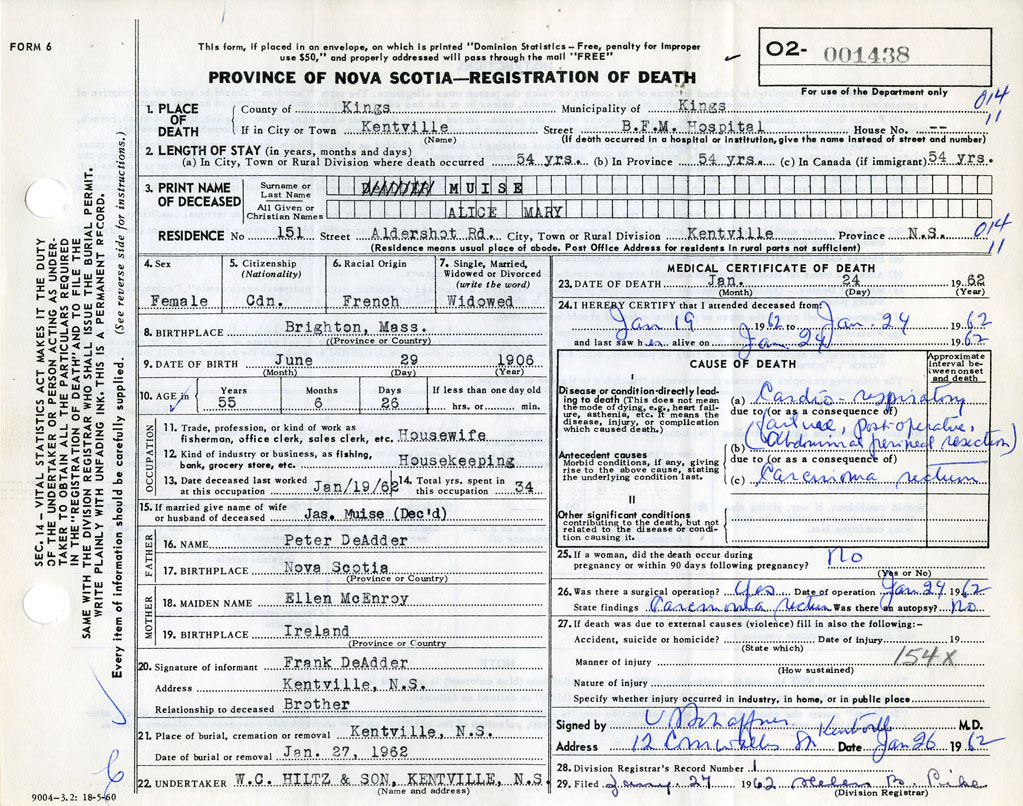 FORM 6
This form, if placed in an envelope, on which is printed "Dominion Statistics – Free, penalty for improper
use $50," and properly addressed will pass through the mail "FREE"
PROVINCE OF NOVA SCOTIA—REGISTRATION OF DEATH
O2- 001438
For use of the Department only
014
11
1. PLACE OF DEATH
County of Kings Municipality of Kings
If in City or Town Kentville Street B.F.M. Hospital House No. --
(Name) (If death occurred in a hospital or institution, give the name instead of street and number)
2. LENGTH OF STAY (in years, months and days)
(a) In City, Town or Rural Division where death occurred 54 yrs. (b) In Province 54 yrs. (c) In Canada (if immigrant) 54 yrs.
3. PRINT NAME OF DECEASED
Surname or Last Name MUISE
All Given or Christian Names ALICE MARY
RESIDENCE No 151 Street Aldershot Rd. City, Town or Rural Division Kentville Province N.S.
014
11
(Residence means usual place of abode. Post Office Address for residents in rural parts not sufficient)
4. Sex
Female
5. Citizenship (Nationality)
Cdn.
6. Racial Origin
French
7. Single, Married, Widowed or Divorced (write the word)
Widowed
8. BIRTHPLACE Brighton, Mass.
((Province or Country)
9. DATE OF BIRTH June 29 1906
(Month) (Day) (Year)
10. AGE in
Years 55
Months 6
Days 26
If less than one day old
hrs. or min.
OCCUPATION
11. Trade, profession, or kind of work as
fisherman, office clerk, sales clerk, etc. Housewife
12. Kind of industry or business, as fishing,
bank, grocery store, etc. Housekeeping
13. Date deceased last worked
at this occupation Jan/19/62
14. Total yrs. spent in
this occupation 34
15. If married give name of wife
or husband of deceased Jas. Muise (Dec'd)
FATHER
16. NAME Peter DeAdder
17. BIRTHPLACE Nova Scotia
(Province or Country)
MOTHER
18. MAIDEN NAME Ellen McEnroy
19. BIRTHPLACE Ireland
(Province or Country
20. Signature of informant Frank DeAdder
Address Kentville, N.S.
Relationship to deceased Brother
21. Place of burial, cremation or removal Kentville, N.S.
Date of burial or removal Jan. 27, 1962
22. UNDERTAKER W.C. HILTZ & SON, KENTVILLE, N.S.
(Name and address)
MEDICAL CERTIFICATE OF DEATH
23. DATE OF DEATH Jan. 24 1962
(Month) (Day) (Year)
24. I HEREBY CERTIFY that I attended deceased from
Jan 19 1962 to Jan. 24 1962
and last saw her alive on Jan 24 1962
CAUSE OF DEATH
Approximate interval between onset and death
I
Disease or condition directly leading to death (This does not mean
the mode of dying, e.g., heart failure, asthenia, etc. It means the
disease, injury, or complication
which caused death.)
(a) Cardio-respiratory
due to (or as a consequence of)
failure, post-operative
(b) (abdominal perineal resection)
Antecedent causes
Morbid conditions, if any, giving
rise to the above cause, stating
the underlying condition last.
due to (or as a consequence of)
(c) Carcinoma rectum
II
Other significant conditions
contributing to the death, but not
related to the disease or condition causing it.
25. If a woman, did the death occur during
pregnancy or within 90 days following pregnancy? No
(Yes or No)
26. Was there a surgical operation? Yes Date of operation Jan 24 1962
State findings Carcinoma rectum Was there an autopsy? No
27. If death was due to external causes (violence) fill in also the following:—
Accident, suicide or homicide? Date of injury 19
(State which)
154X
Manner of injury
(How sustained)
Nature of injury
Specify whether injury occurred in industry, in home, or in public place
Signed by Schaffner Kentville M.D.
Address 12 Cornwallis St Date Jan 26 1962
28. Division Registrar's Record Number 1
29. Filed 27 1962
(Division Registrar)
SEC. 14—VITAL STATISTICS ACT MAKES IT THE DUTY
OF THE UNDERTAKER OR PERSON ACTING AS UNDERTAKER TO OBTAIN ALL THE PARTICULARS REQUIRED
IN THE "REGISTRATION OF DEATH" AND TO FILE THE
SAME WITH THE DIVISION REGISTRAR WHO SHALL ISSUE THE BURIAL PERMIT.
WRITE PLAINLY WITH UNFADING INK. THIS IS A PERMANENT RECORD.
Every item of information should be carefully supplied. (See reverse side for instructions.)
6
9004—3.2: 18-5-60